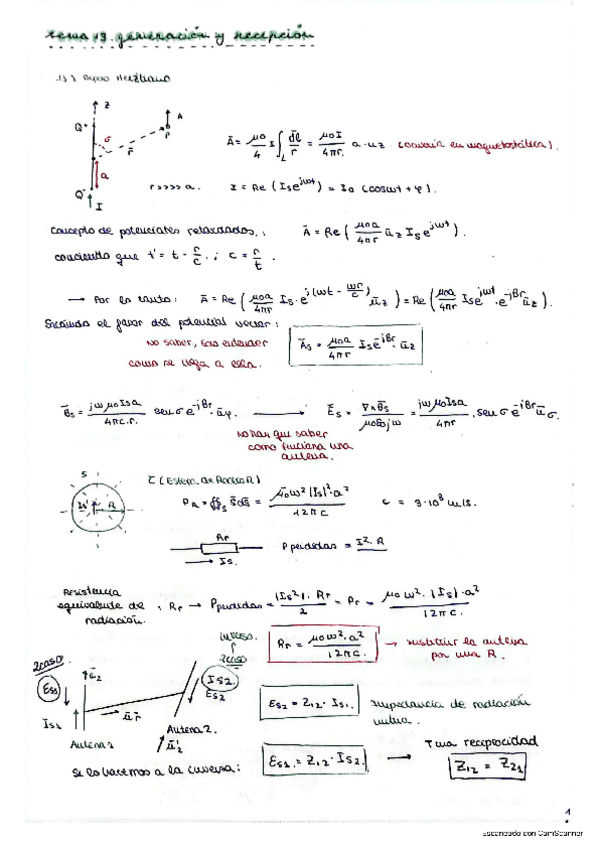 tema 13. generación y recepción
Z
Q⁺
A
P
σ
r̄
a
Q⁻
I
Ā = μo/4 I ∫_L dl̄/r = μoI/4πr. a·uz (ocurría en magnetostática).
r >>>> a. I = Re (Is e^jωt) = Io (cosωt + φ).
Concepto de potenciales retardados,: Ā = Re ( μoa/4πr ūz Is e^jωt ).
t' = t - r/c. ; c = r/t .
→ Por lo tanto: Ā = Re ( μoa/4πr Is·e^j(ωt - ωr/c) ūz ) = Re ( μoa/4πr Is e^jωt·e^-jBr ūz ).
el fasor del potencial vector:
Ās = μoa/4πr Is e^-jBr·ūz
no saber, solo entender
como se llega a ella.
B̄s = jω μo Isa/4πc.r. sen σ e^-jBr·ūφ. → Ēs = ∇×B̄s/μoεojω = jωμoIsa/4πr .sen σ e^-jBr ūσ.
no hay que saber
como funciona una
antena.
S
Is
R
τ (Esfera de Radio R)
PR = ∯s s̄ds̄ = μoω²|Is|²·a²/12πc c = 3·10⁸ m/s.
Rr
Is.
Pperdidas = I²·R
Resistencia
equivalente de
radiación.
: Rr → Pperdidas = |Is²|·Rr/2 = Pr = μo ω²·|Is|·a²/12πc.
Rr = μoω²·a²/12πc. → sustituir la antena
por una R.
inverso.
2caso
2caso.
Es1
ū2
Is2.
Es2
Is1
ū r̄
Antena 1
Antena 2.
ū'2
Es2 = Z12·Is1. Impedancia de radiación
mutua.
Si lo hacemos a la inversa: Es1 = Z12·Is2. → Tma reciprocidad
Z12 = Z21
1
Escaneado con CamScanner